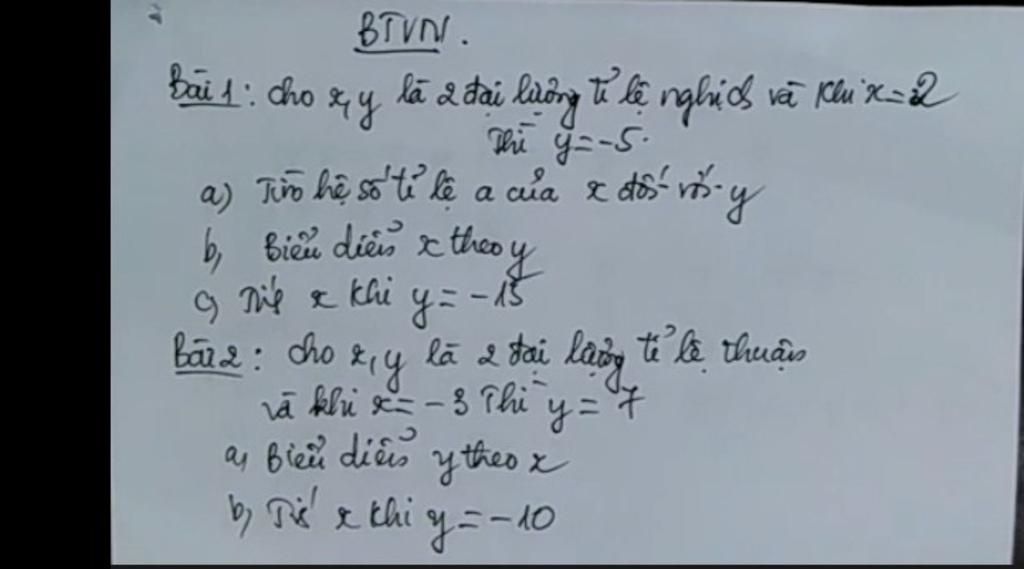 BTVN.
Bài 1: cho x, y là 2 đại lượng tỉ lệ nghịch và khi x = 2
thì y = -5.
a) Tìm hệ số tỉ lệ a của x đối với y
b, Biểu diễn x theo y
c, Tính x khi y = -15
Bài 2: cho x, y là 2 đại lượng tỉ lệ thuận
và khi x = -3 thì y = 7
a, Biểu diễn y theo x
b, Tính x khi y = -10